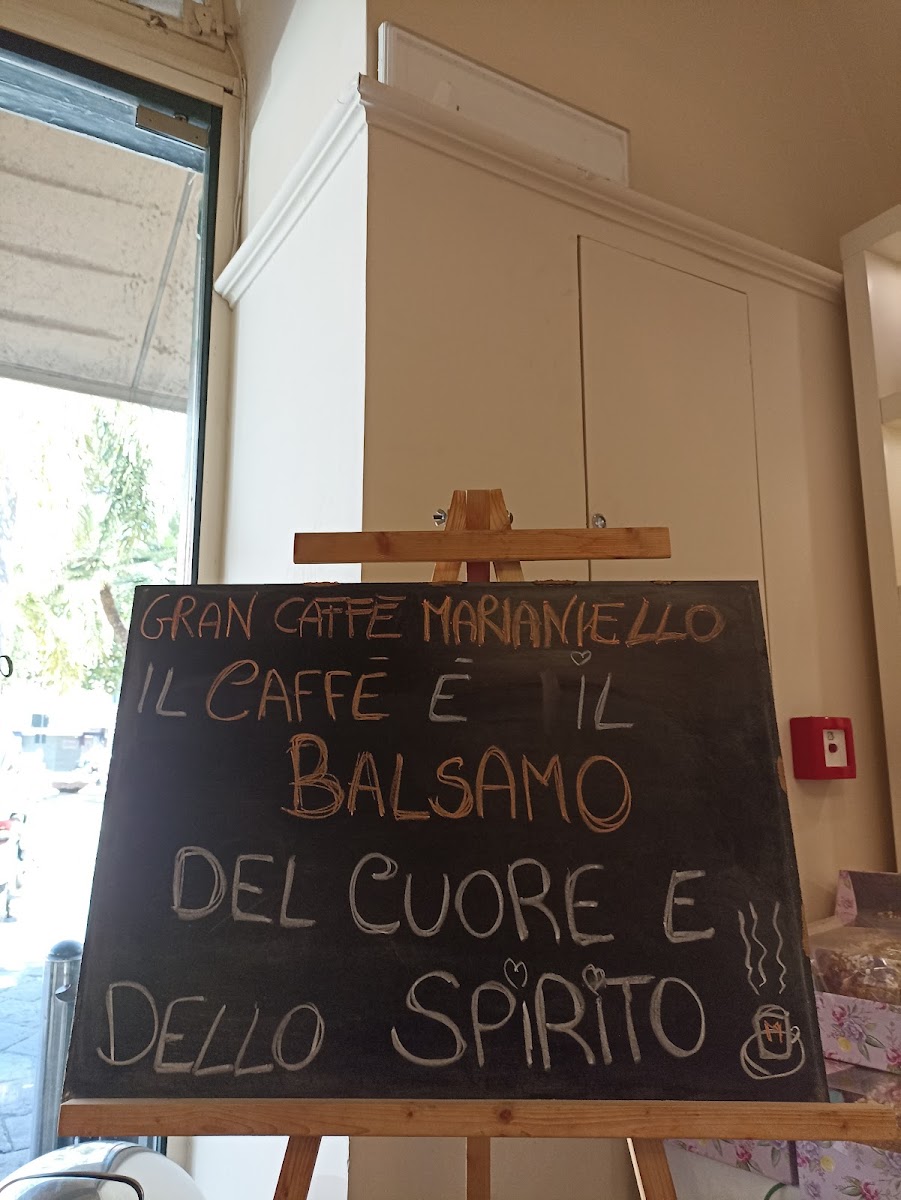 GRAN CAFFĒ MARIANIELLO
IL CAFFĒ Ē IL
BALSAMO
DEL CUORE E
DELLO SPIRITO
M